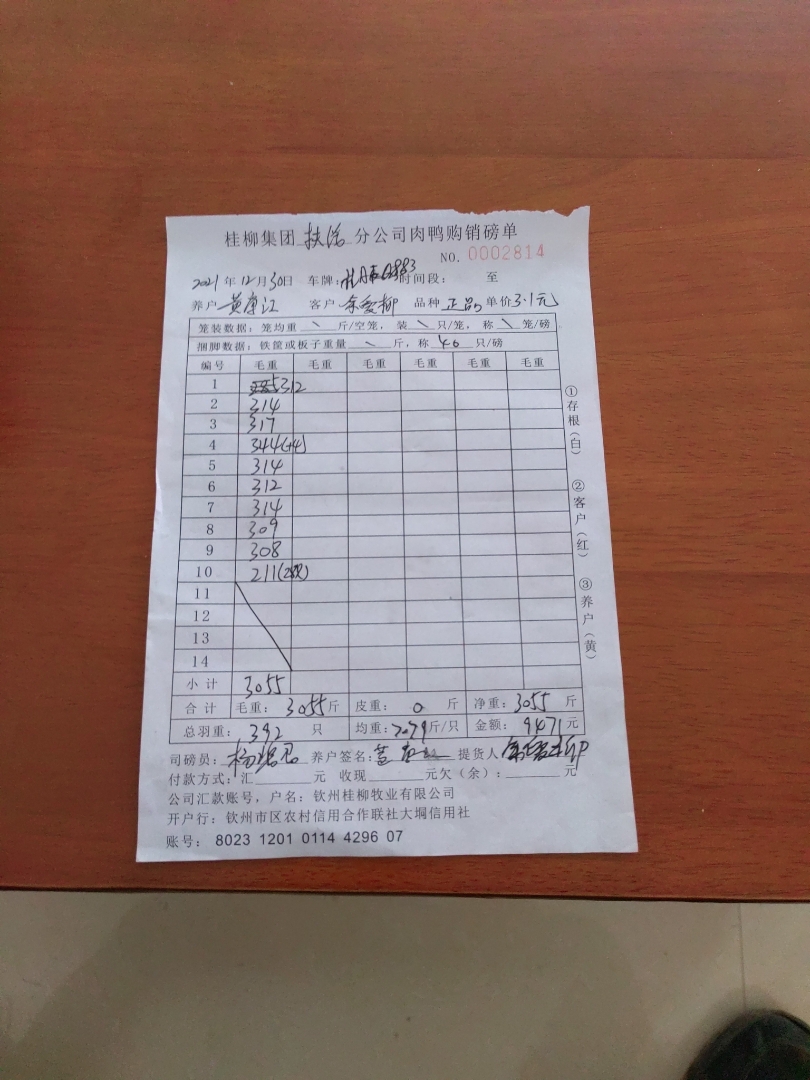 桂柳集团 分公司肉鸭购销磅单
NO. 0002814
2021年12月30日 车牌: 时间段: 至
养户 黄康江 客户 余爱柳 品种 正品 单价3.1元
笼装数据: 笼均重 \ 斤/空笼, 装 \ 只/笼, 称 \ 笼/磅
捆脚数据: 铁筐或板子重量 \ 斤, 称 40 只/磅
编号 毛重 毛重 毛重 毛重 毛重 毛重
1 312
2 314
3 317
4 344(+4)
5 314
6 312
7 314
8 309
9 308
10 211(28只)
11
12
13
14
小计 3055
合计 毛重: 3055斤 皮重: 0 斤 净重: 3055 斤
总羽重: 392 只 均重: 7.79斤/只 金额: 9471元
司磅员: 养户签名: 提货人
付款方式: 汇 元 收现 元欠(余): 元
公司汇款账号, 户名: 钦州桂柳牧业有限公司
开户行: 钦州市区农村信用合作联社大垌信用社
账号: 8023 1201 0114 4296 07
①存根(白)
②客户(红)
③养户(黄)